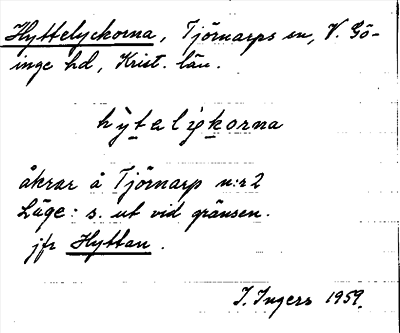 Hyttelyckorna, Tjörnarps sn, V. Gö-
inge hd, Krist. län.
hỳtelykorna
åkrar å Tjörnarp n:r 2
Läge: s. ut vid gränsen.
jfr Hyttan.
I. Ingers 1959.